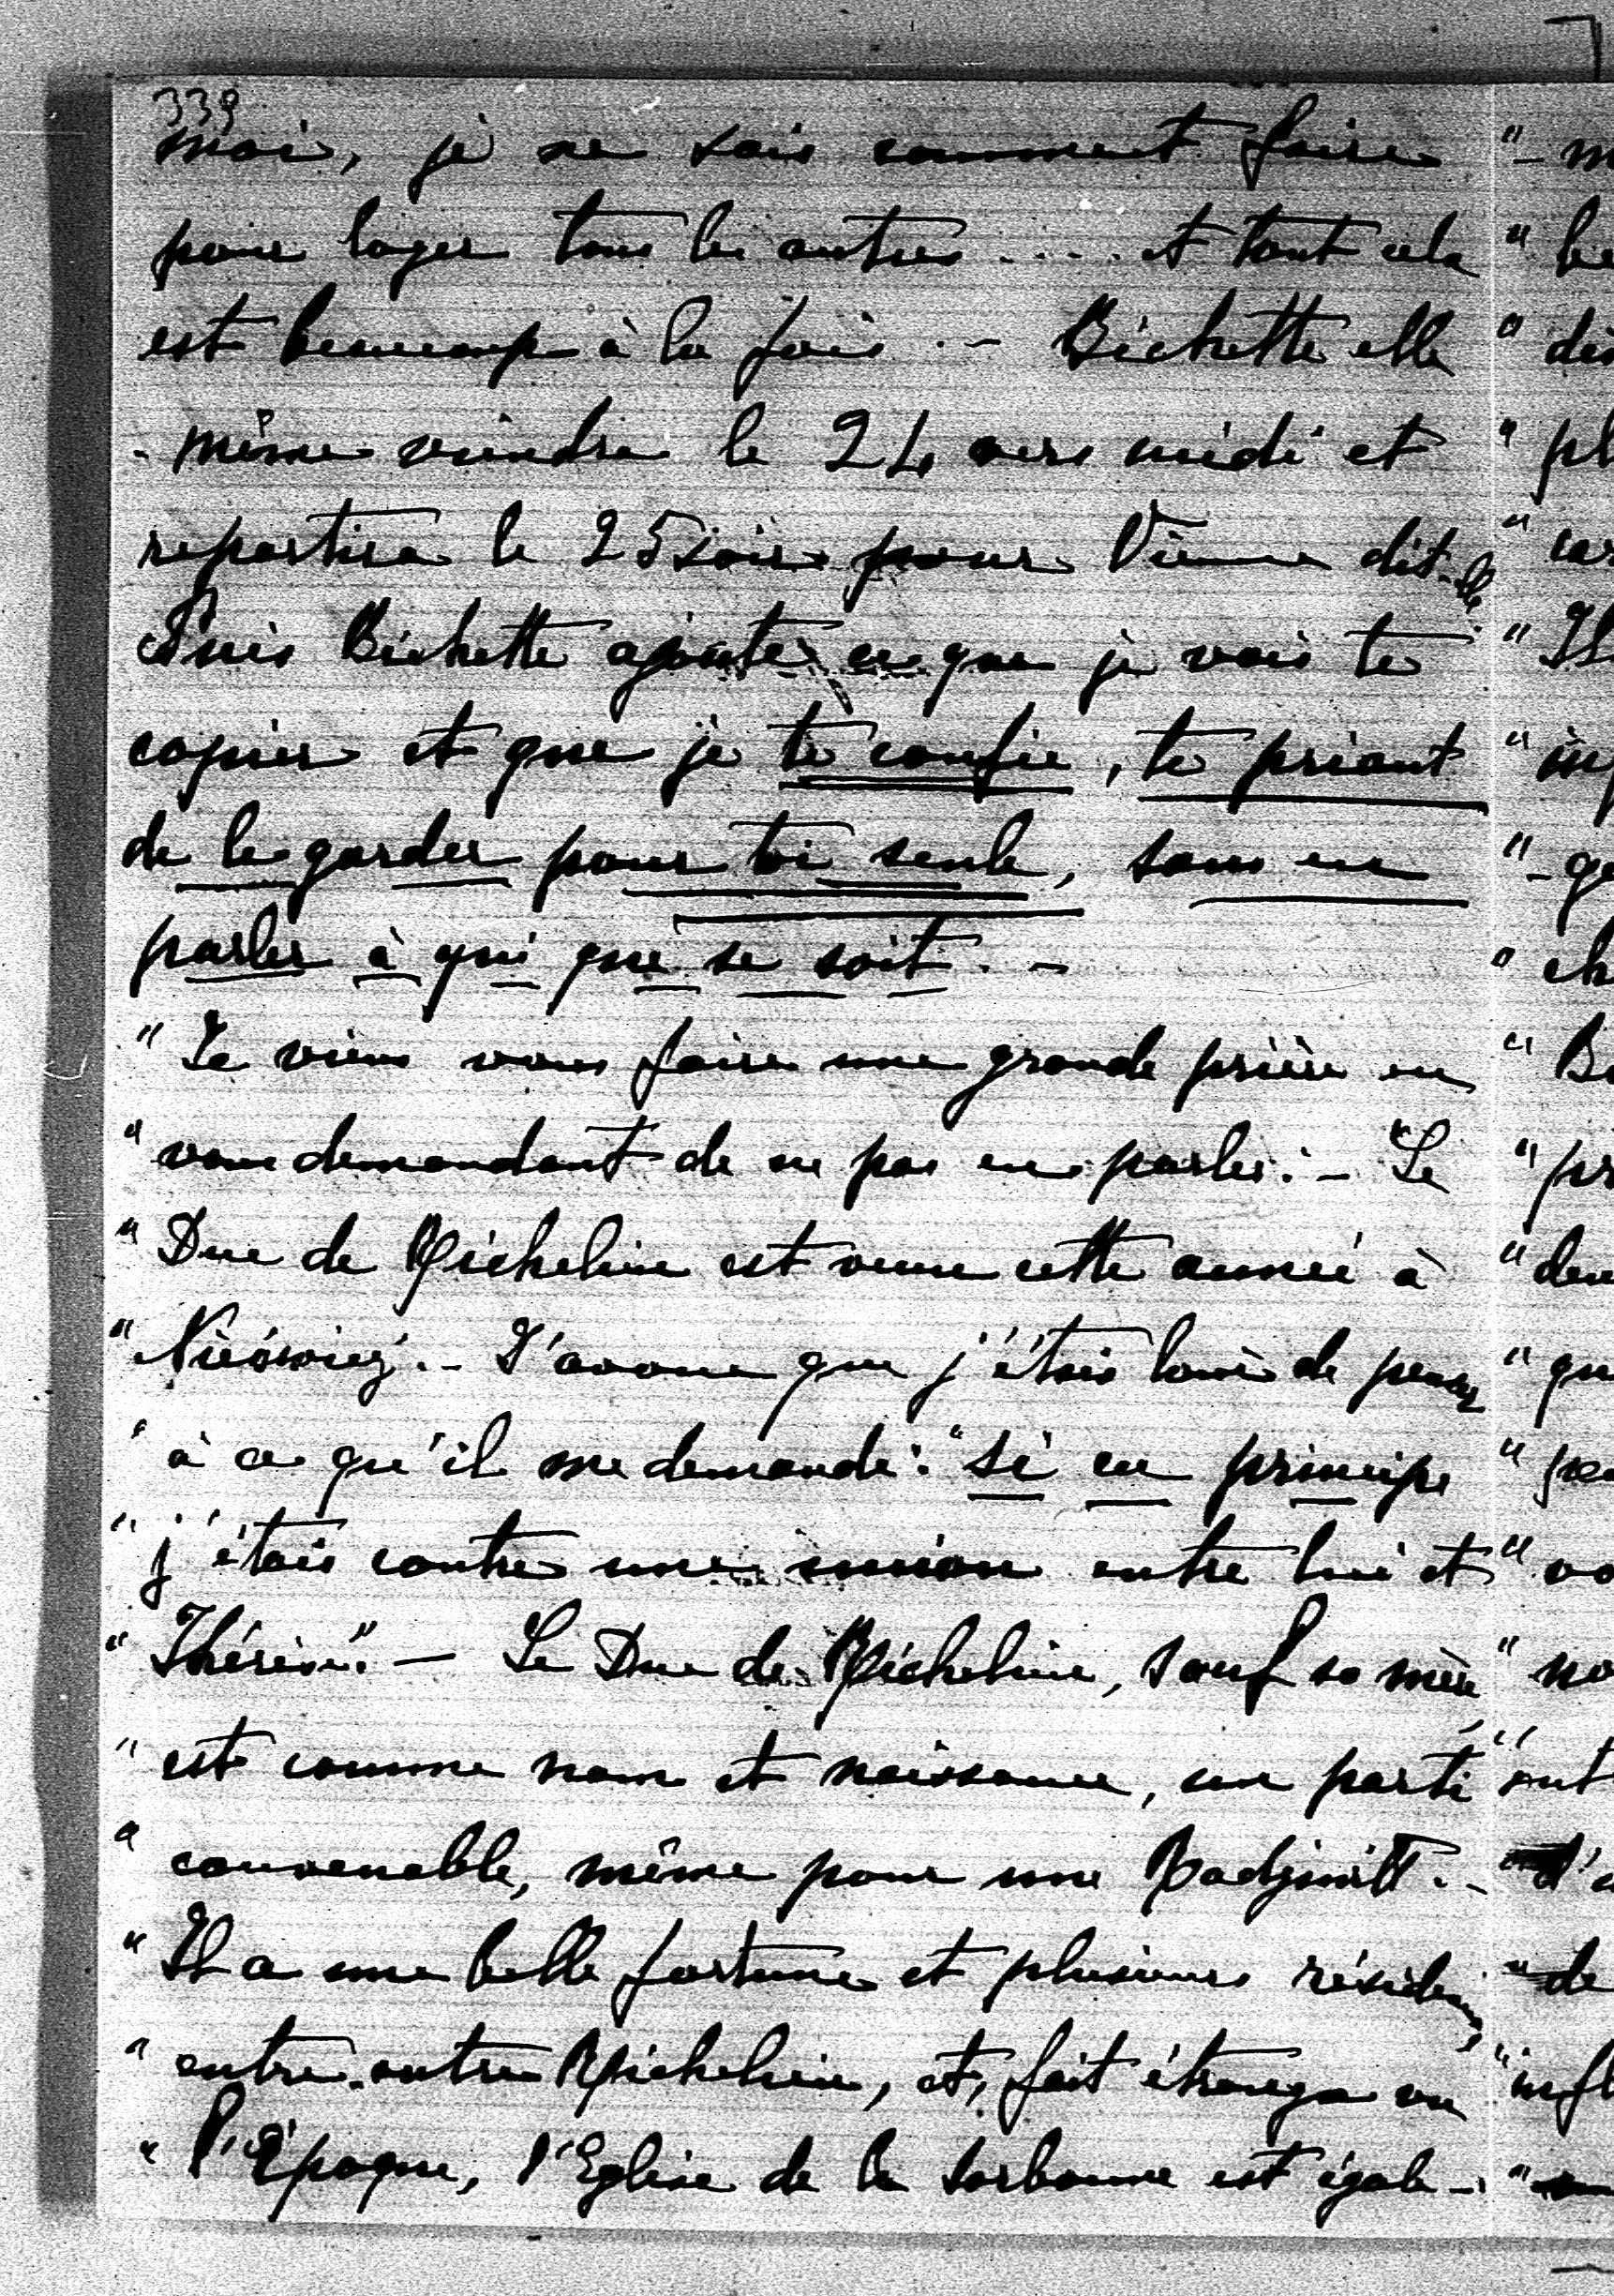 339
moi, je ne sais comment faire
pour loger tous les autres .... et tout cela
est beaucoup à la fois. - Bichette elle
- même viendra le 24 vers midi et
repartira le 25 soir pour Vienne dit-elle.
Puis Bichette ajoute ce que je vais te
copier et que je te confie, te priant
de le garder pour toi seule, sans en
parler à qui que se soit. -
" Je viens vous faire une grande prière en
" vous demandant de ne pas en parler. - Le
" Duc de Richelieu est venu cette année à
" Nieśwież. - J'avoue que j'étais loin de penser
" à ce qu'il me demande: "si en principe
" j'étais contre une union entre lui et
" Thérèse". - Le Duc de Richelieu, sauf sa mère
" est comme nom et naissance, un parti
" convenable, même pour une Radziwill. -
" Il a une belle fortune et plusieurs résidences
" entre-autre Richelieu, et, fait étrange vu
" l'Epoque, l'Eglise de la Sorbonne est égale-